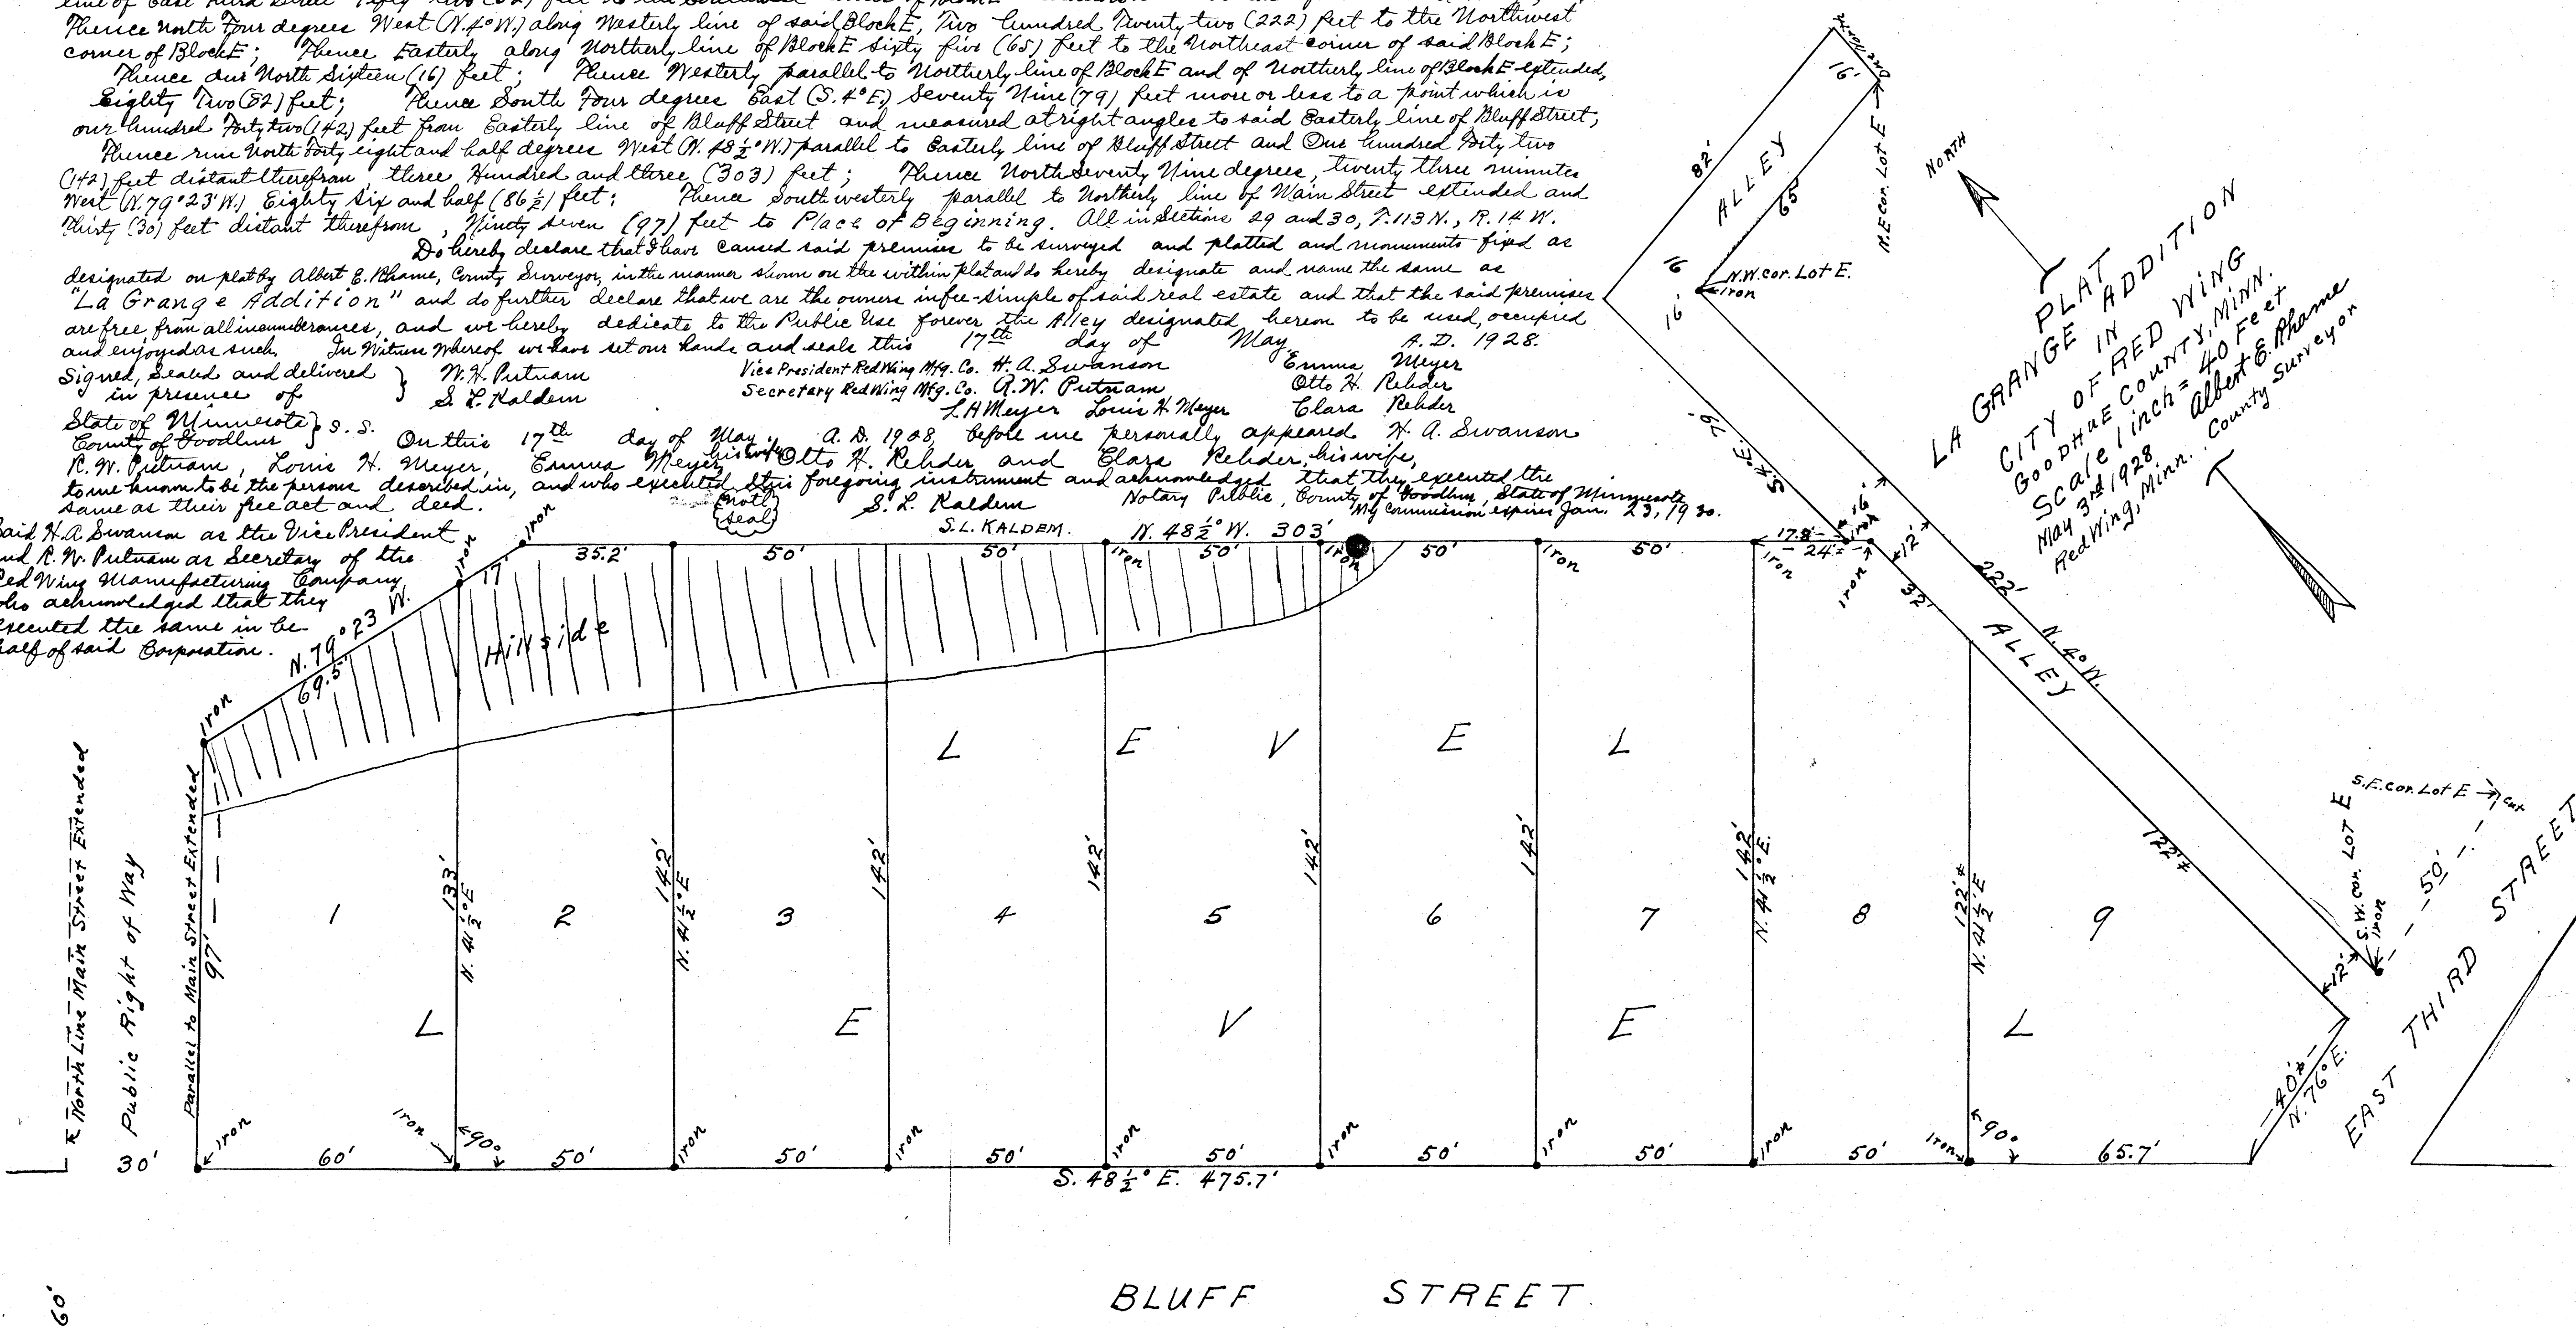 Thence North Four degrees West (N.4°W.) along Westerly line of said Block E, Two hundred Twenty two (222) feet to the Northwest
corner of Block E; Thence Easterly along Northerly line of Block E Sixty five (65) feet to the Northeast corner of said Block E;
Thence due North Sixteen (16) feet; Thence Westerly parallel to Northerly line of Block E and of Northerly line of Block E extended,
Eighty Two (82) feet; Thence South Four degrees East (S.4°E.) Seventy Nine (79) feet more or less to a point which is
one hundred Forty two (142) feet from Easterly line of Bluff Street and measured at right angles to said Easterly line of Bluff Street;
Thence run North Forty eight and half degrees West (N. 48½° W.) parallel to Easterly line of Bluff Street and One hundred Forty two
(142) feet distant therefrom three Hundred and three (303) feet; Thence North Seventy Nine degrees, twenty three minutes
West (N.79°23'W.) Eighty Six and half (86½) feet; Thence Southwesterly parallel to Northerly line of Main Street extended and
Thirty (30) feet distant therefrom, Ninety seven (97) feet to Place of Beginning. All in Sections 29 and 30, T.113 N., R. 14 W.
Do hereby declare that I have caused said premises to be surveyed and platted and monuments fixed as
designated on plat by Albert E. Rhame, County Surveyor, in the manner shown on the within plat and do hereby designate and name the same as
"La Grange Addition" and do further declare that we are the owners in fee-simple of said real estate and that the said premises
are free from all incumberances, and we hereby dedicate to the Public Use forever the Alley designated hereon to be used, occupied
and enjoyed as such. In Witness Whereof we have set our hands and seals this 17th day of May A.D. 1928.
Signed, Sealed and delivered } W.H. Putnam Vice President Red Wing Mfg. Co. H. A. Swanson Emma Meyer
in presence of S. L. Kaldem Secretary Red Wing Mfg. Co. R.W. Putnam Otto H. Rehder
L H Meyer Louis H Meyer Clara Rehder
State of Minnesota } S. S.
County of Goodhue On this 17th day of May A. D. 1908, before me personally appeared H. A. Swanson
R. W. Putnam, Louis H. Meyer, Emma Meyer his wife Otto H. Rehder and Clara Rehder, his wife,
to me known to be the persons described in, and who executed this foregoing instrument and acknowledged that they executed the
same as their free act and deed. (Not Seal) S. L. Kaldem Notary Public, County of Goodhue, State of Minnesota
S.L. KALDEM. My Commission expires Jan. 23, 1930.
said H.A Swanson as the Vice President
and R. W. Putnam as Secretary of the
Red Wing Manufacturing Company,
who acknowledged that they
executed the same in be-
half of said Corporation.
16'
82'
ALLEY
65'
N.E cor. Lot E
16
16'
N.W. cor. Lot E.
Iron
NORTH
PLAT
LA GRANGE ADDITION
IN
CITY OF RED WING
GOODHUE COUNTY, MINN.
Scale 1 inch = 40 Feet
May 3rd 1928 Albert E. Rhame
Red Wing, Minn. County Surveyor
79'
S.4°E.
N. 48½° W. 303'
Iron
Iron
17'
35.2'
50'
50'
Iron
50'
Iron
50'
Iron
50'
Iron
17.8'
24.2'
16'
Iron
Iron
12'
32'
222'
ALLEY
N. 4° W.
122.7
Iron
N. 79°23 W.
69.5'
Hillside
L E V E L
North Line Main Street Extended
Public Right of Way
Parallel to Main Street Extended
97'
1
133'
N. 41½° E
2
142'
N. 41½° E
3
142'
4
142'
5
142'
6
142'
7
142'
N. 41½° E.
8
N. 41½° E
9
S.E. cor. Lot E
cut
S.W. cor. LOT E
Iron
50'
12'
L E V E L
N. 76° E.
EAST THIRD STREET
30'
Iron
60'
Iron
90°
50'
Iron
50'
Iron
50'
Iron
50'
Iron
50'
Iron
50'
Iron
50'
Iron
90°
65.7'
S. 48½° E. 475.7'
60'
BLUFF STREET